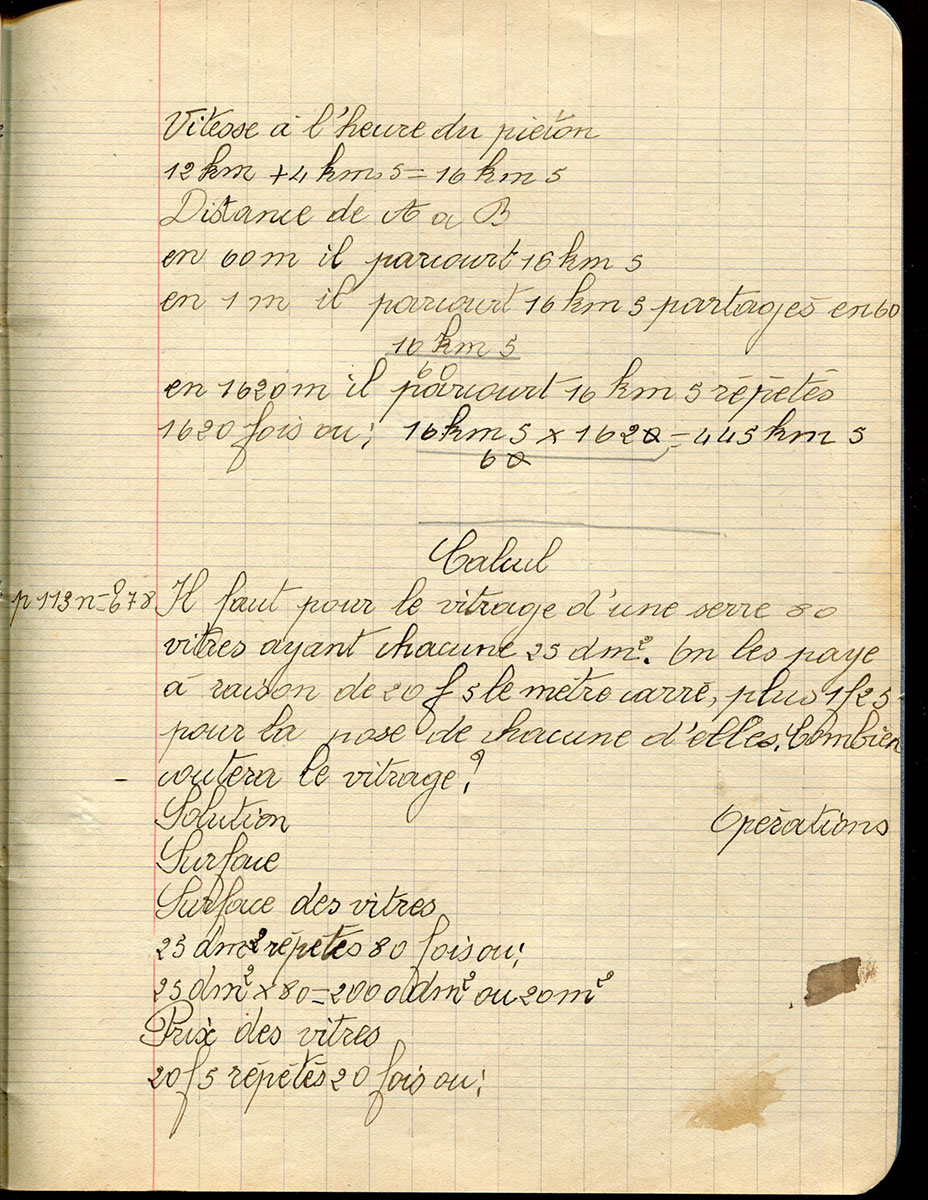 Vitesse à l'heure du piéton
12 km + 4 km 5 = 16 km 5
Distance de A a B
en 60 m il parcourt 16 km 5
en 1 m il parcourt 16 km 5 partagés en 60
16 km 5
60
en 1620 m il parcourt 16 km 5 répétés
1620 fois ou : 16 km 5 x 1620 = 445 km 5
60
Calcul
p 113 n=º 678 Il faut pour le vitrage d'une serre 80
vitres ayant chacune 25 dm². On les paye
à raison de 20 f 5 le mètre carré, plus 1f25
pour la pose de chacune d'elles. Combien
coutera le vitrage ?
Solution Opérations
Surface
Surface des vitres
25 dm² répétés 80 fois ou :
25 dm² x 80 = 2000 dm² ou 20 m²
Prix des vitres
20 f 5 répétés 20 fois ou :